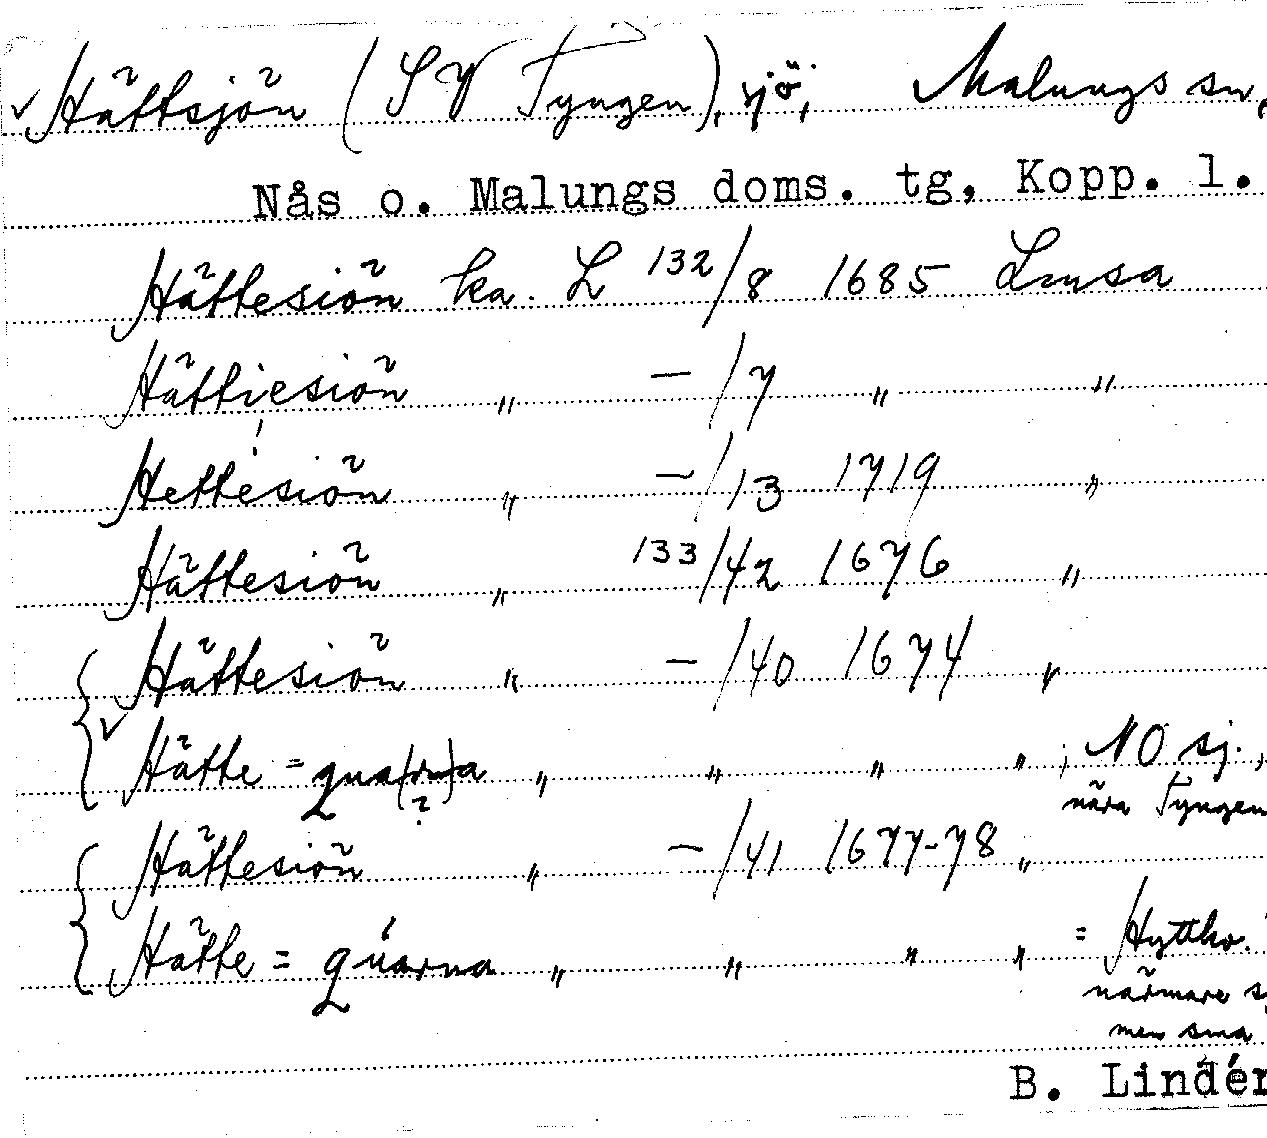 Hättsjön (SV Tyngen), sjö, Malungs sn,
Nås o. Malungs doms. tg, Kopp. l.
Hättesiön ka. L 132/8 1685 Lmsa
Hättiesiön „ — /7 „ „
Hettesiön „ — /13 1719 „
Hättesiön „ 133/42 1676 „
Hättesiön „ — /40 1674 „
Hätte = qua(rn)a „ „ „ „ ; NO sj.,
? nära Tyngen
Hättesiön „ — /41 1677-78 „
Hätte = quarna „ „ „ „ = Hyttkv.
närmare
men sma
B. Lindén